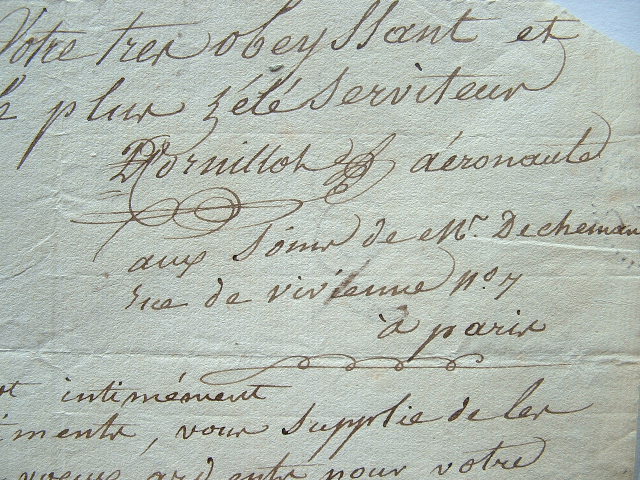 Votre tres obeyssant et
plus zélé serviteur
aéronaute
aux soins de Mr. Decheman
rue de vivienne No. 7
à paris
intimément
ments, vous supplie de les
voeux ardents pour votre